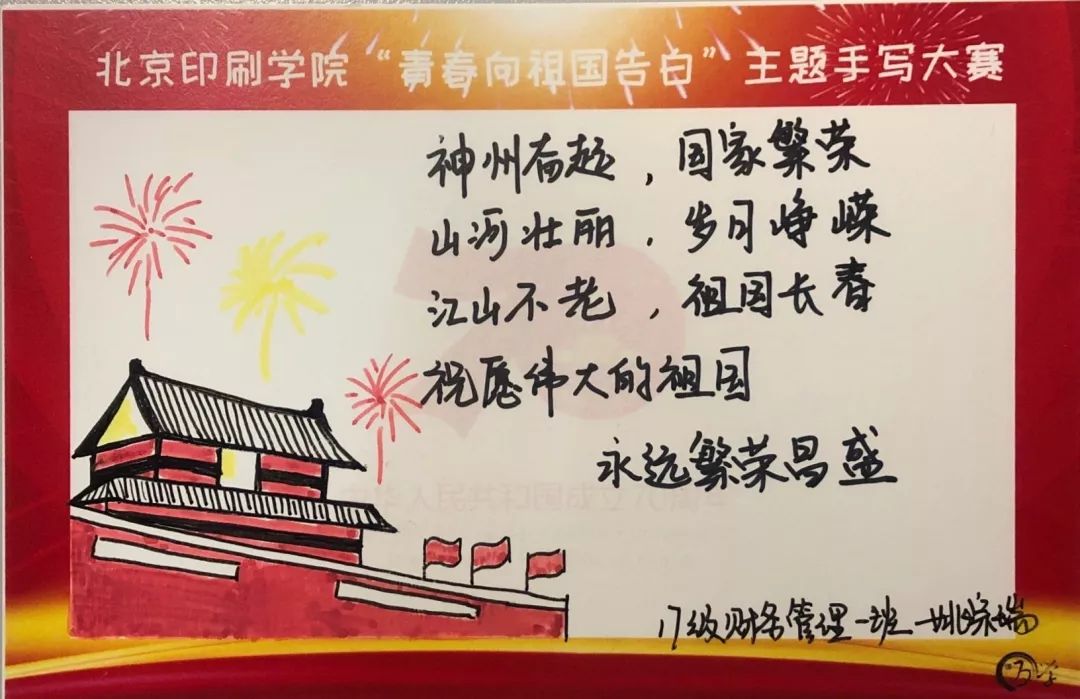 北京印刷学院“青春向祖国告白”主题手写大赛
神州奋起，国家繁荣
山河壮丽，岁月峥嵘
江山不老，祖国长春
祝愿伟大的祖国
永远繁荣昌盛
17级财务管理一班 姚综瑞